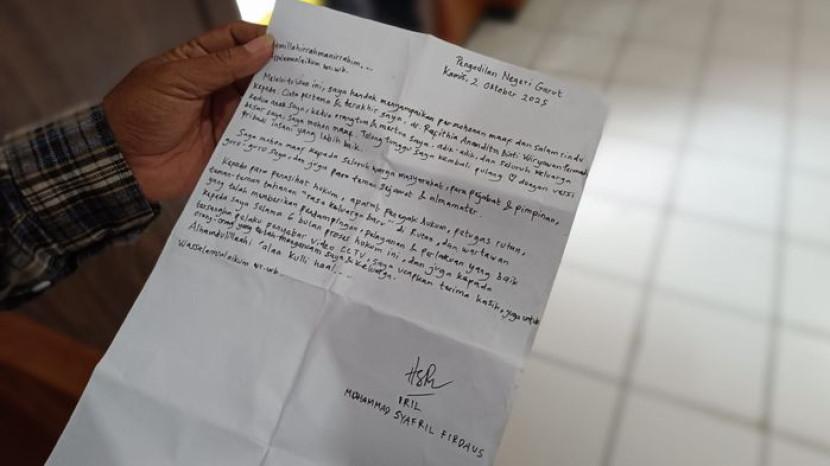 Pengadilan Negeri Garut
Kamis, 2 Oktober 2025
millahirrahmanirrahim....
Melalui tulisan ini, saya hendak menyampaikan permohonan maaf dan salam rindu
kepada: Cinta pertama & terakhir saya, dr. binti
kedua anak saya, kedua orangtua & mertua saya, adik-adik, dan seluruh keluarga
besar saya, saya mohon maaf. Tolong tunggu saya kembali pulang dengan versi
pribadi insani yang lebih baik.
Saya mohon maaf kepada seluruh warga masyarakat, para pejabat & pimpinan,
guru-guru saya, dan juga para teman sejawat & almamater.
Kepada para penasihat hukum, aparat penegak hukum, petugas rutan,
teman-teman tahanan "rasa keluarga baru" di Rutan, dan wartawan
yang telah memberikan pendampingan, pelayanan & perlakuan yang baik
kepada saya selama 6 bulan proses hukum ini, dan juga kepada
tersangka pelaku penyebar video CCTV, saya ucapkan terima kasih, juga untuk
orang-orang yang telah saya & keluarga.
Alhamdulillaahi 'alaa kulli haal....
Wassalamualaikum wr.wb.
IRIL
MOHAMMAD SYAFRIL FIRDAUS